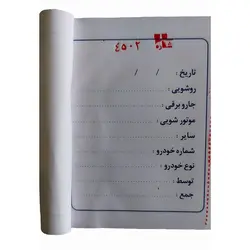 شماره ۴۵۰۲
تاریخ : / /
روشویی :
جارو برقی :
موتور شویی :
سایر :
شماره خودرو :
نوع خودرو :
توسط :
جمع :